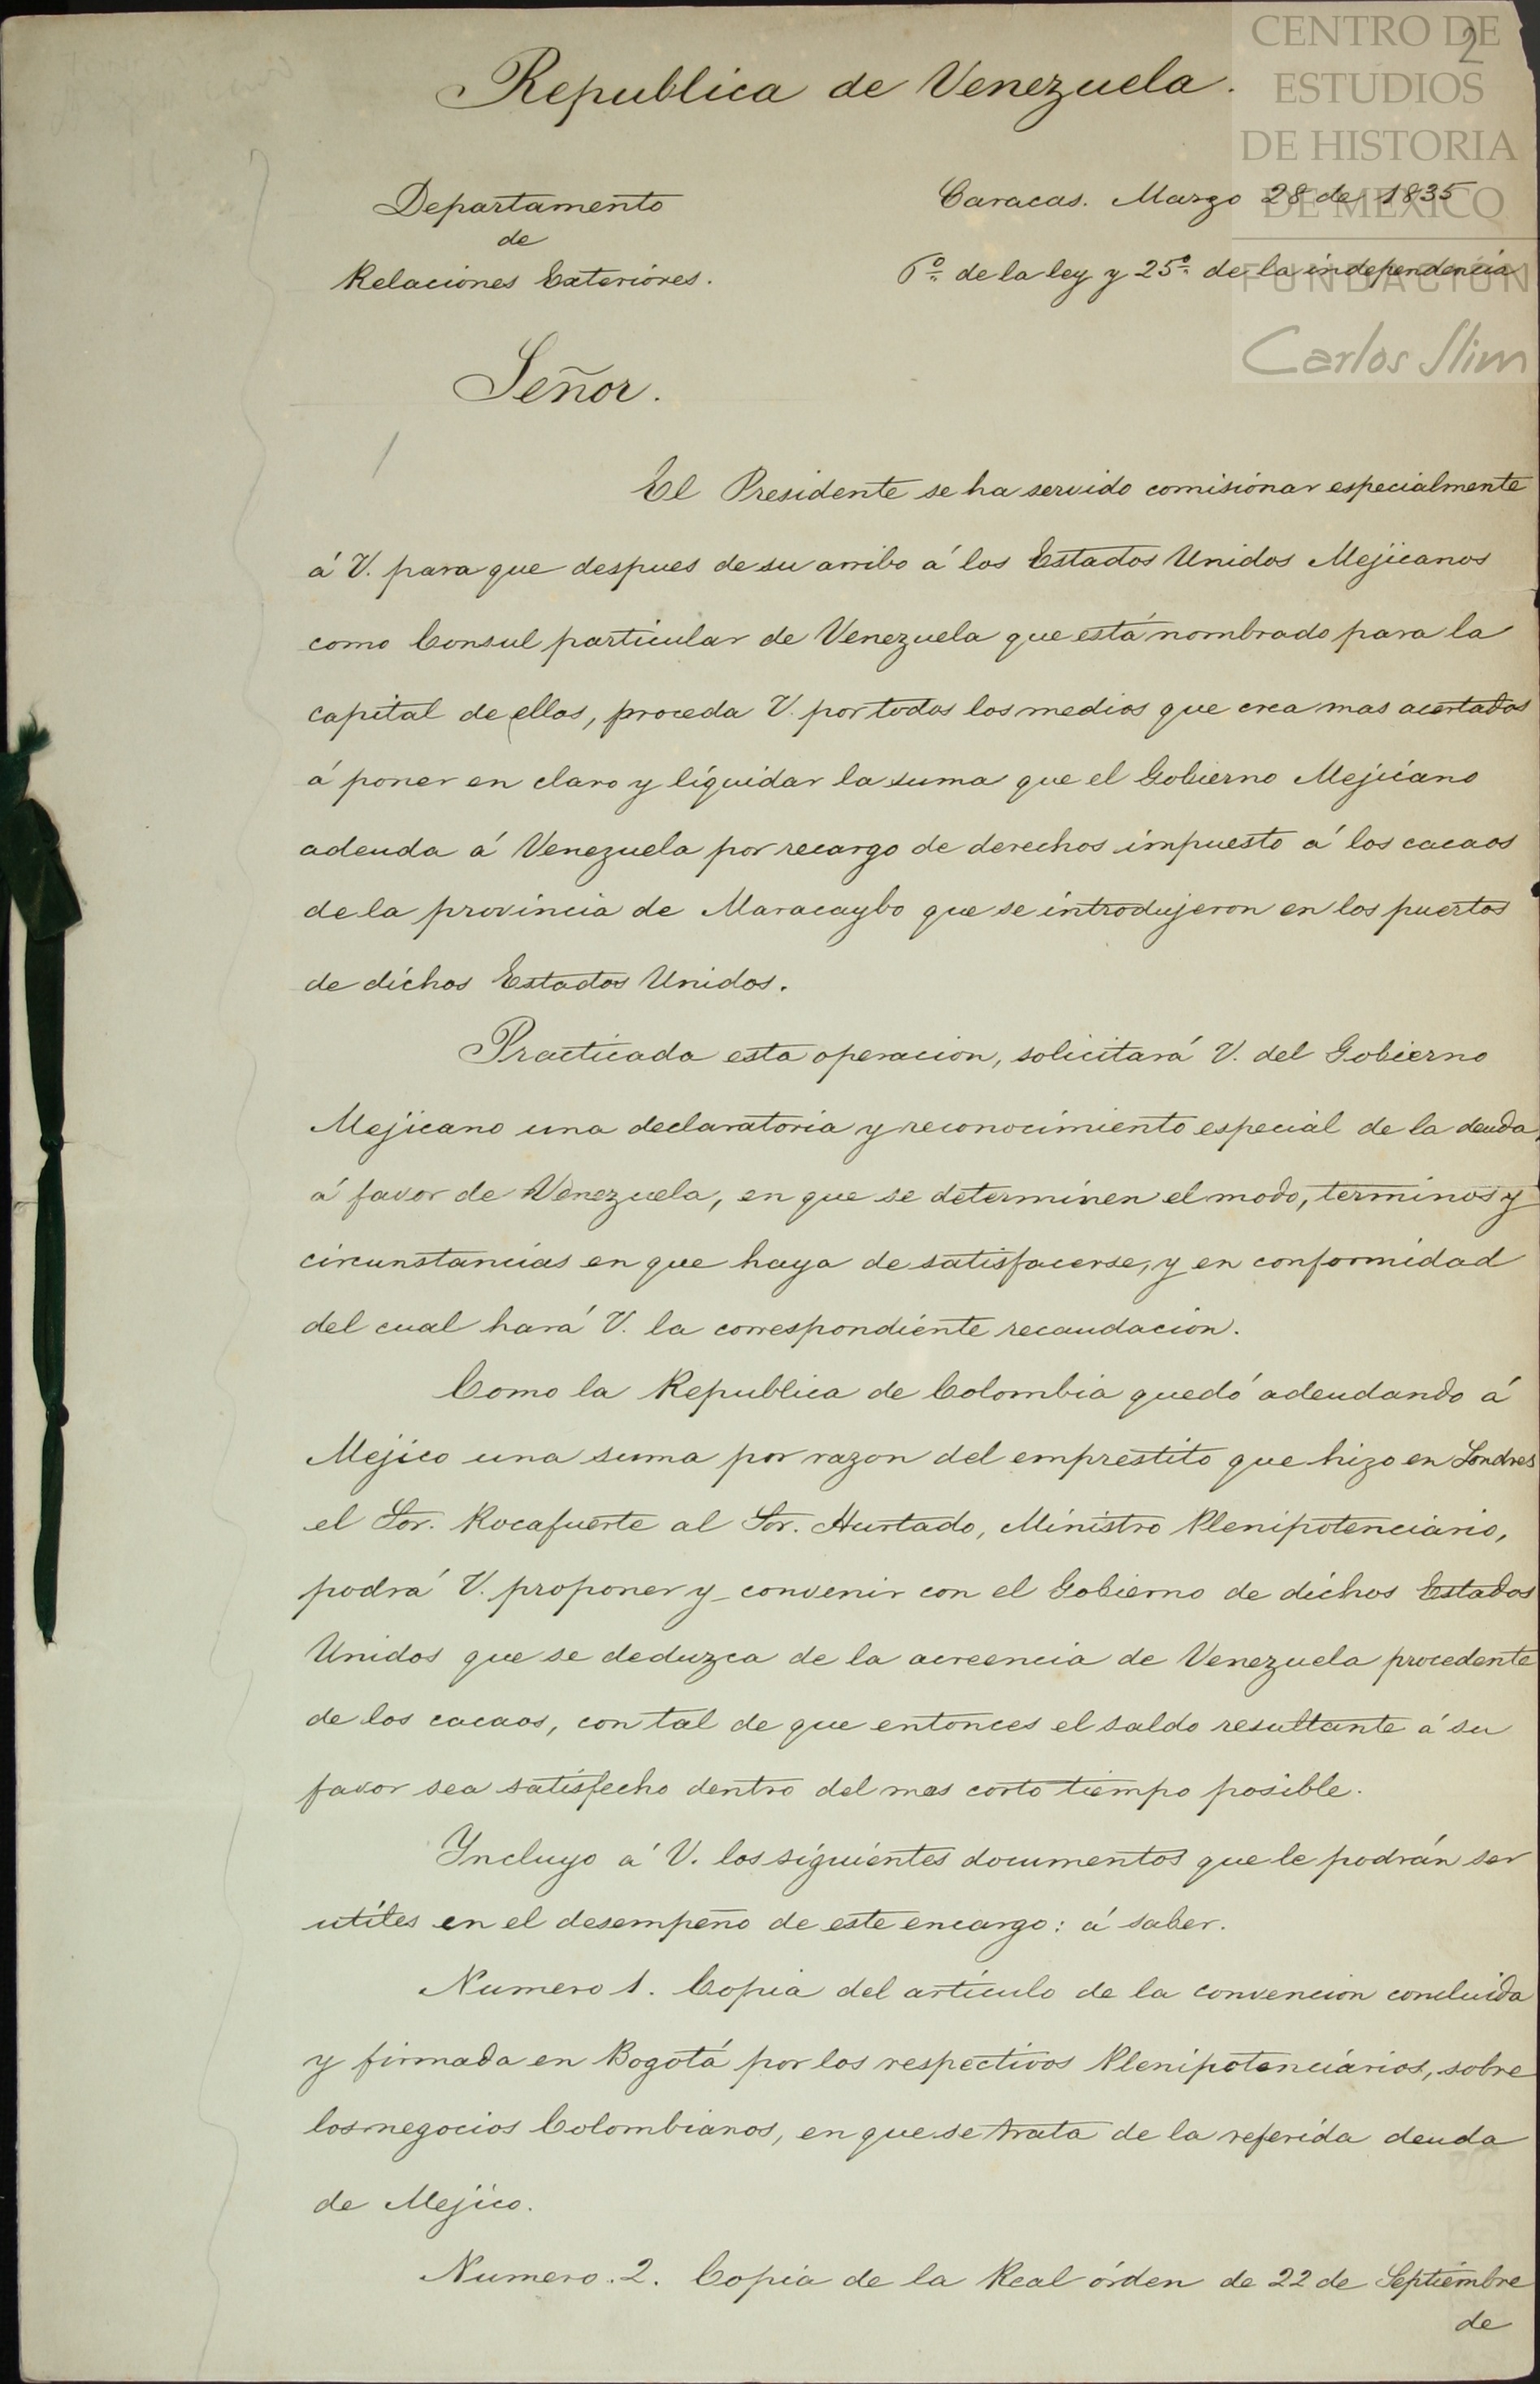 CENTRO DE
ESTUDIOS
DE HISTORIA
DE MEXICO
FUNDACIÓN
Carlos Slim
2
Republica de Venezuela.
Departamento
de
Relaciones Exteriores.
Caracas. Marzo 28 de 1835
6º de la ley y 25º de la independencia
Señor.
El Presidente se ha servido comisionar especialmente
á V. para que despues de su arribo á los Estados Unidos Mejicanos
como Consul particular de Venezuela que está nombrado para la
capital de ellos, proceda V. por todos los medios que crea mas acertados
á poner en claro y liquidar la suma que el Gobierno Mejicano
adeuda á Venezuela por recargo de derechos impuesto á los cacaos
de la provincia de Maracaybo que se introdujeron en los puertos
de dichos Estados Unidos.
Practicada esta operacion, solicitará V. del Gobierno
Mejicano una declaratoria y reconocimiento especial de la deuda
á favor de Venezuela, en que se determinen el modo, terminos y
circunstancias en que haya de satisfacerse, y en conformidad
del cual hará V. la correspondiente recaudacion.
Como la Republica de Colombia quedó adeudando á
Mejico una suma por razon del emprestito que hizo en Londres
el Sor. Rocafuerte al Sor. Hurtado, Ministro Plenipotenciario,
podrá V. proponer y convenir con el Gobierno de dichos Estados
Unidos que se deduzca de la acreencia de Venezuela procedente
de los cacaos, con tal de que entonces el saldo resultante á su
favor sea satisfecho dentro del mas corto tiempo posible.
Yncluyo á V. los siguientes documentos que le podrán ser
utiles en el desempeño de este encargo: á saber.
Numero 1. Copia del artículo de la convencion concluida
y firmada en Bogotá por los respectivos Plenipotenciarios, sobre
los negocios Colombianos, en que se trata de la referida deuda
de Mejico.
Numero. 2. Copia de la Real órden de 22 de Septiembre
de